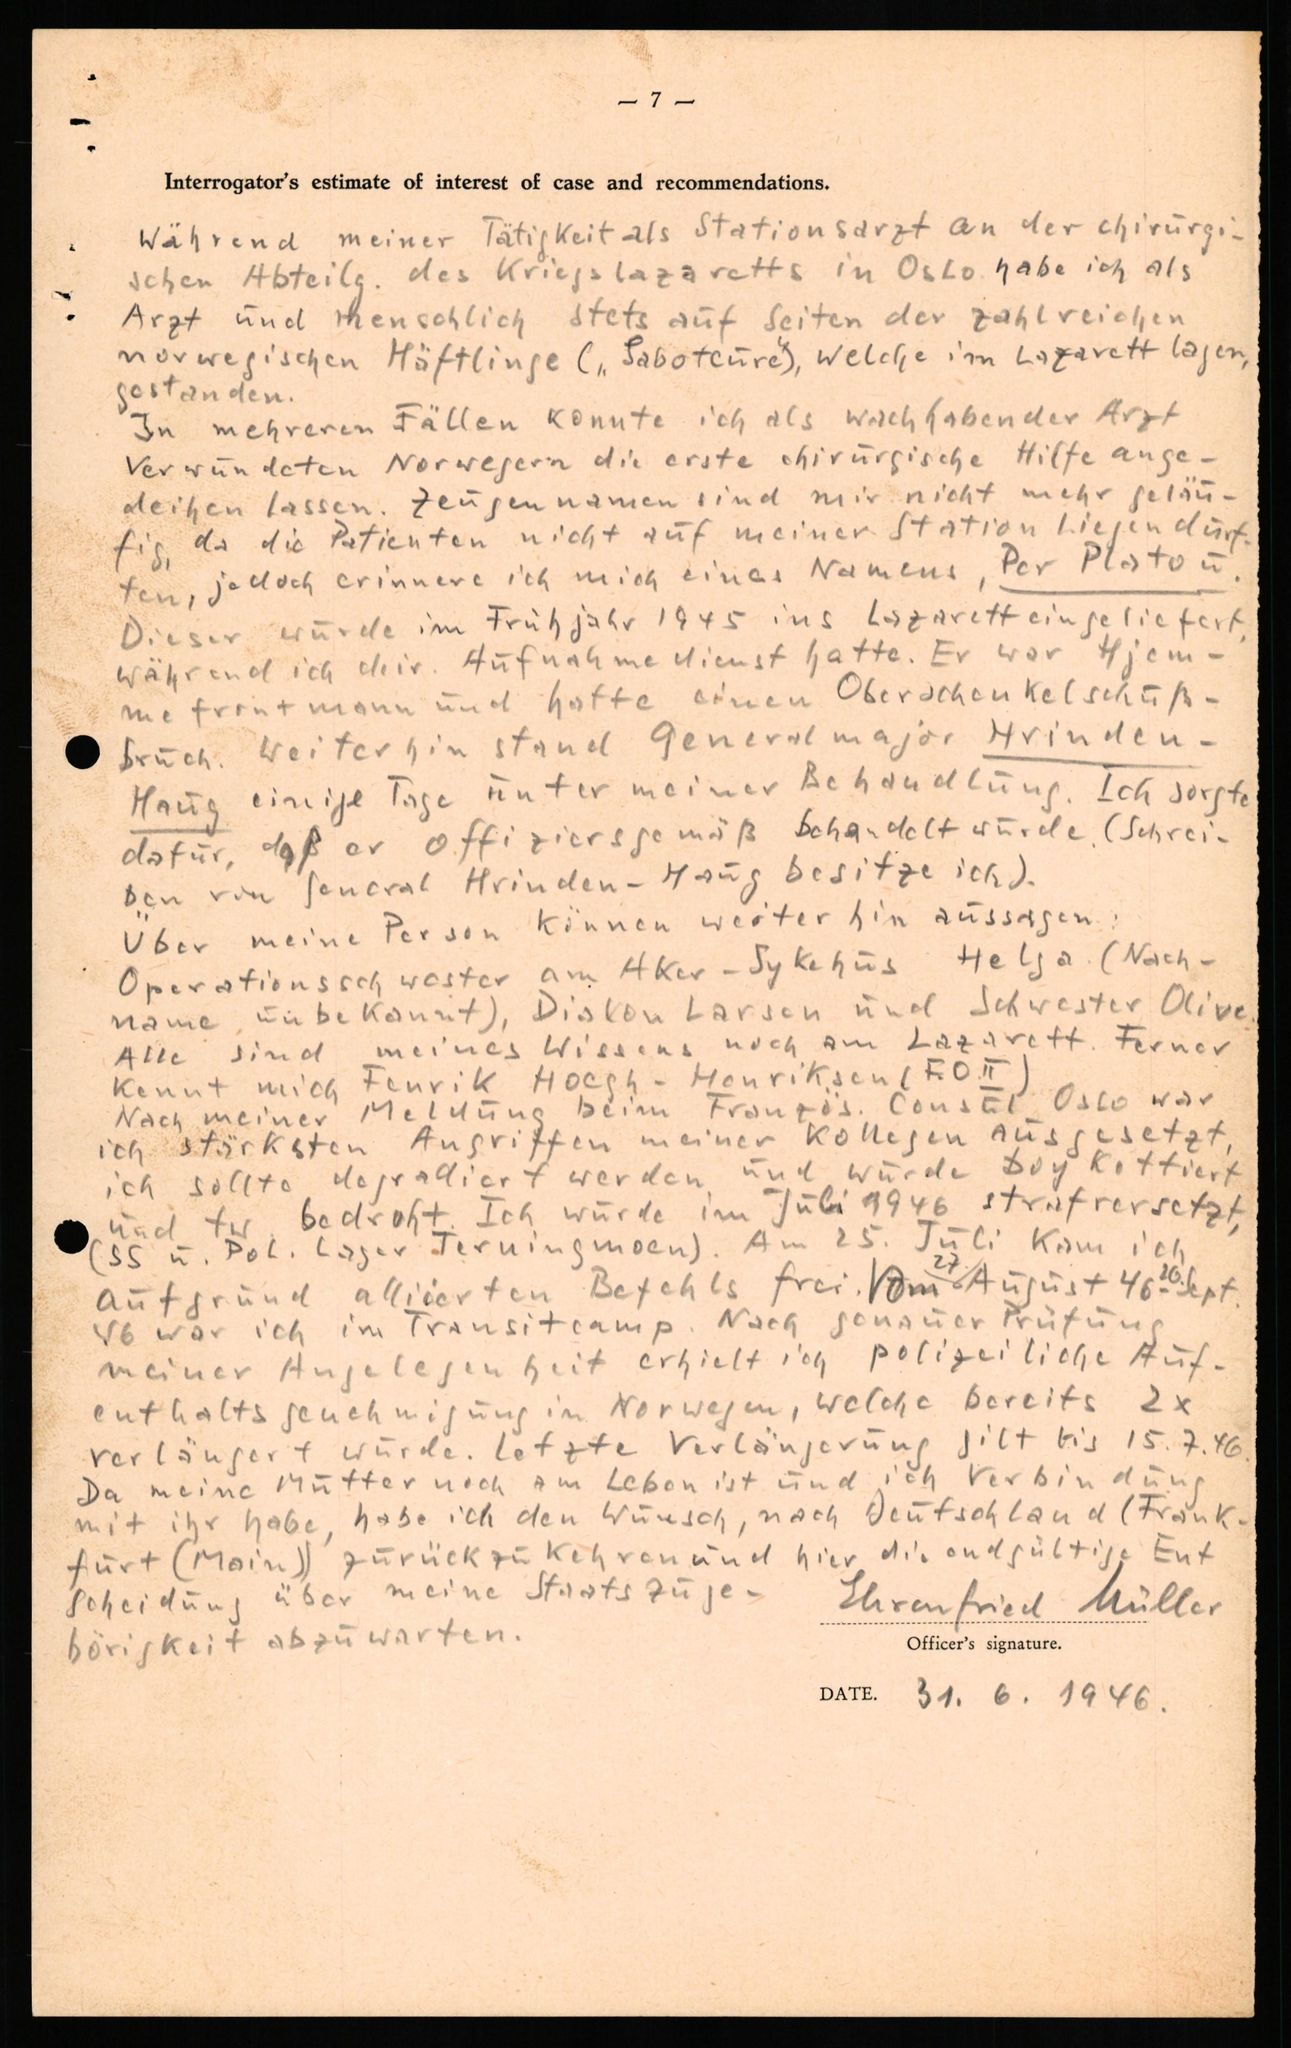 — 7 —
Interrogator's estimate of interest of case and recommendations.
Während meiner Tätigkeit als Stationsarzt an der chirurgi-
schen Abteilg. des Kriegslazaretts in Oslo habe ich als
Arzt und menschlich stets auf Seiten der zahlreichen
norwegischen Häftlinge („Saboteure“), welche im Lazarett lagen,
gestanden.
In mehreren Fällen konnte ich als wachhabender Arzt
verwundeten Norwegern die erste chirurgische Hilfe ange-
deihen lassen. Zeugennamen sind mir nicht mehr geläu-
fig, da die Patienten nicht auf meiner Station liegen durf-
ten, jedoch erinnere ich mich eines Namens, Per Platou.
Dieser wurde im Frühjahr 1945 ins Lazarett eingeliefert,
während ich chir. Aufnahmedienst hatte. Er war Hjem-
mefrontmann und hatte einen Oberschenkelschuß-
bruch. Weiterhin stand Generalmajor Hrinden-
Haug einige Tage unter meiner Behandlung. Ich sorgte
dafür, daß er offiziersgemäß behandelt wurde. (Schrei-
ben von General Hrinden-Haug besitze ich).
Über meine Person können weiterhin aussagen:
Operationsschwester am Aker-Sykehus Helga (Nach-
name unbekannt), Diakon Larsen und Schwester Olive.
Alle sind meines Wissens noch am Lazarett. Ferner
kennt mich Fenrik Hoegh-Henriksen (F.O.II)
Nach meiner Meldung beim Französ. Consul Oslo war
ich stärksten Angriffen meiner Kollegen ausgesetzt,
ich sollte degradiert werden und wurde boykottiert
und tw. bedroht. Ich wurde im Juli 1946 strafversetzt,
(SS u. Pol. Lager Terningmoen). Am 25. Juli kam ich
aufgrund alliierten Befehls frei. Vom 27. August 46 - 20. Sept.
46 war ich im Transitcamp. Nach genauer Prüfung
meiner Angelegenheit erhielt ich polizeiliche Auf-
enthaltsgenehmigung in Norwegen, welche bereits 2x
verlängert wurde. Letzte Verlängerung gilt bis 15.7.46.
Da meine Mutter noch am Leben ist und ich Verbindung
mit ihr habe, habe ich den Wunsch, nach Deutschland (Frank-
furt (Main)) zurückzukehren und hier die endgültige Ent
scheidung über meine Staatszuge-
hörigkeit abzuwarten.
Ehrenfried Müller
Officer's signature.
DATE. 31. 6. 1946.